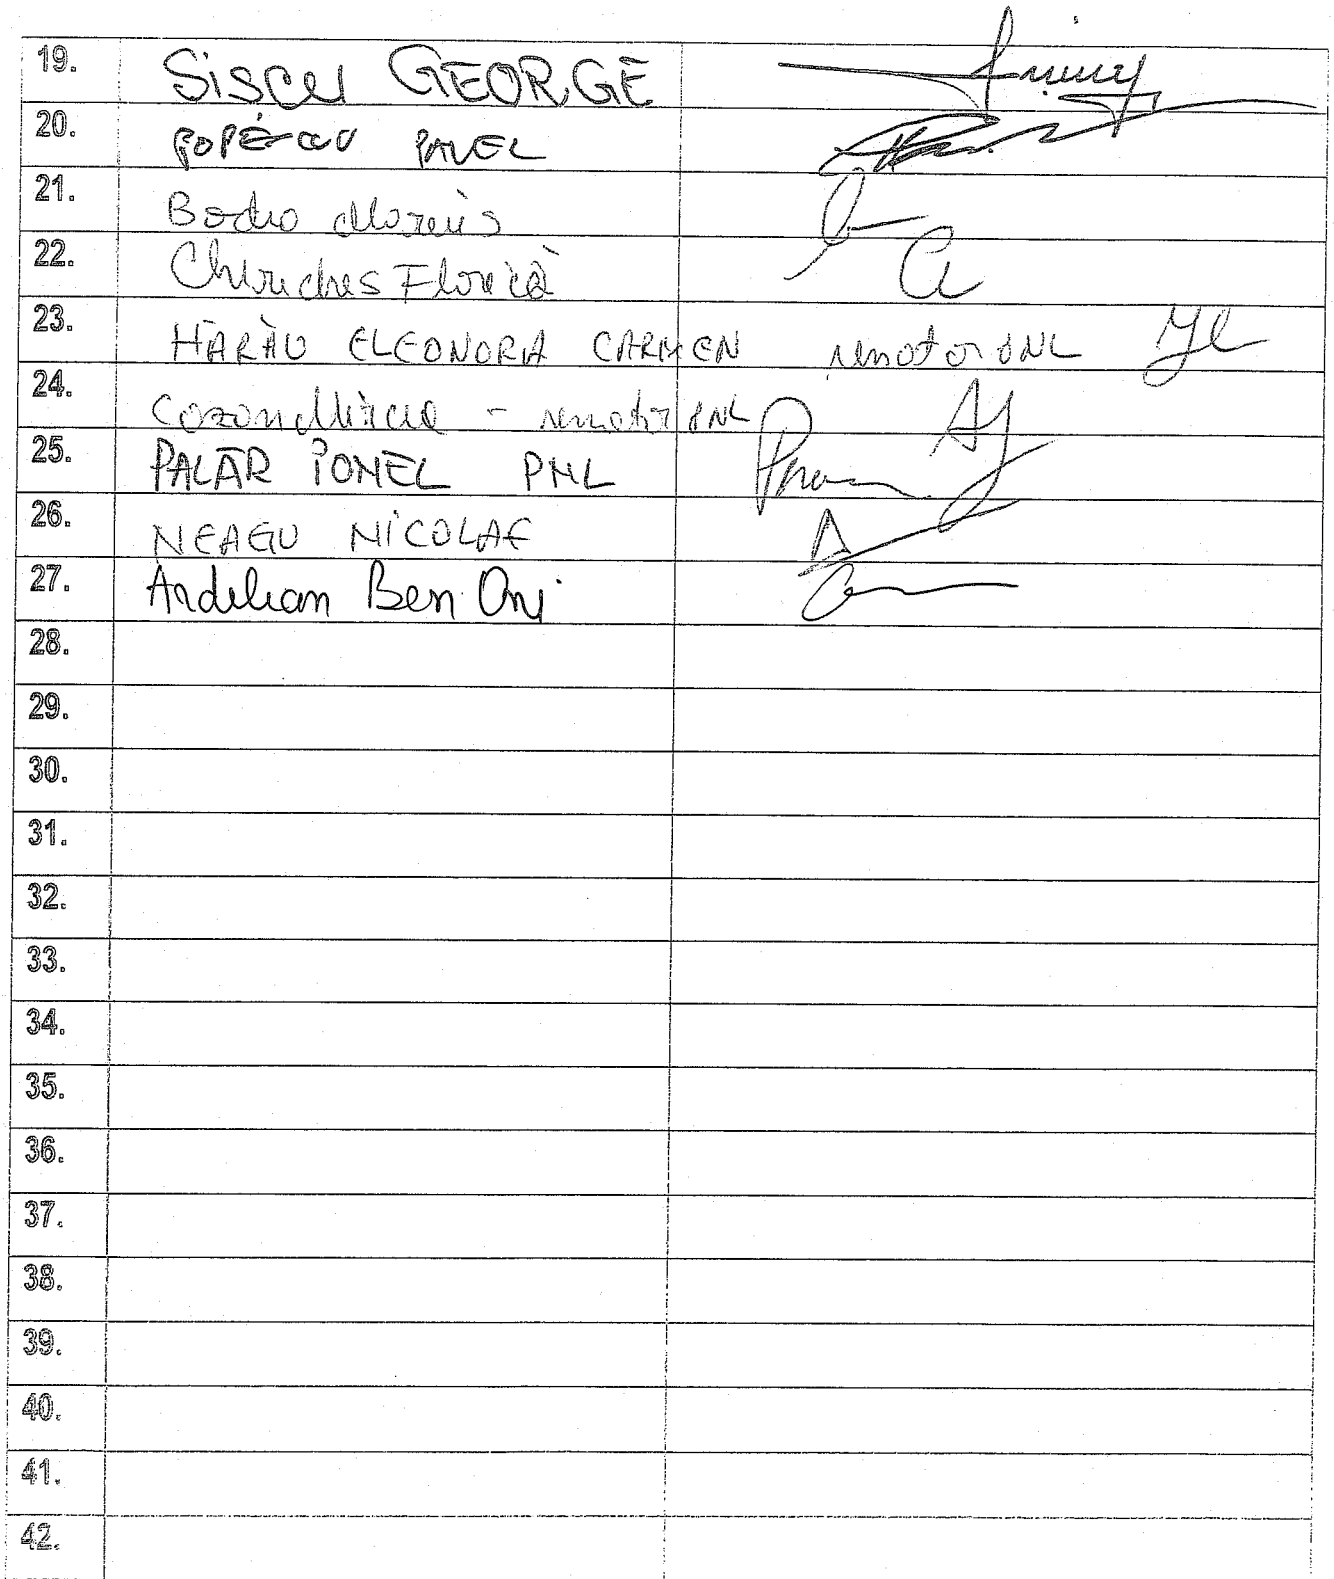 19. Siscu GEORGE
20. POPESCU PAVEL
21. Bodea Marius
22. Chirieches Florica
23. HARĂU ELEONORA CARMEN senator PNL
24. Cozan Mircea - senator PNL
25. PALĂR IONEL PNL
26. NEAGU NICOLAE
27. Ardelean Ben Oni
28.
29.
30.
31.
32.
33.
34.
35.
36.
37.
38.
39.
40.
41.
42.